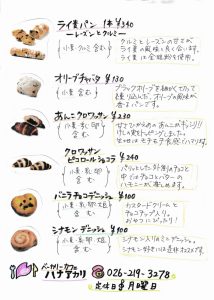 ライ麦パン 1本 ¥340
ーレーズンとクルミー
(小麦・クルミ 含む)
クルミとレーズンの甘さが
ライ麦の風味と良く合います。
ライ麦は全粒粉を使用。
オリーブチャバタ ¥130
(小麦 含む)
ブラックオリーブを細かく切って
練り込んだ、オリーブの風味が
香るパンです。
あんこクロワッサン ¥230
(小麦・乳・卵 含む)
クロワッサン
ピコロールショコラ ¥240
(小麦・乳・卵 含む)
パリッとした外側の生地と
中ではチョコとバターの
ハーモニーが楽しめます。
バニラチョコデニッシュ ¥100
(小麦・乳・卵・大豆 含む)
カスタードクリームと
チョコチップ入り。
おやつにピッタリ!
シナモンデニッシュ ¥100
(小麦・乳・卵 含む)
シナモン入りのミニデニッシュ。
シナモン好きには是非オススメです。
ベーカリーカフェ
ハナアカリ
026-219-3278
定休日 月曜日